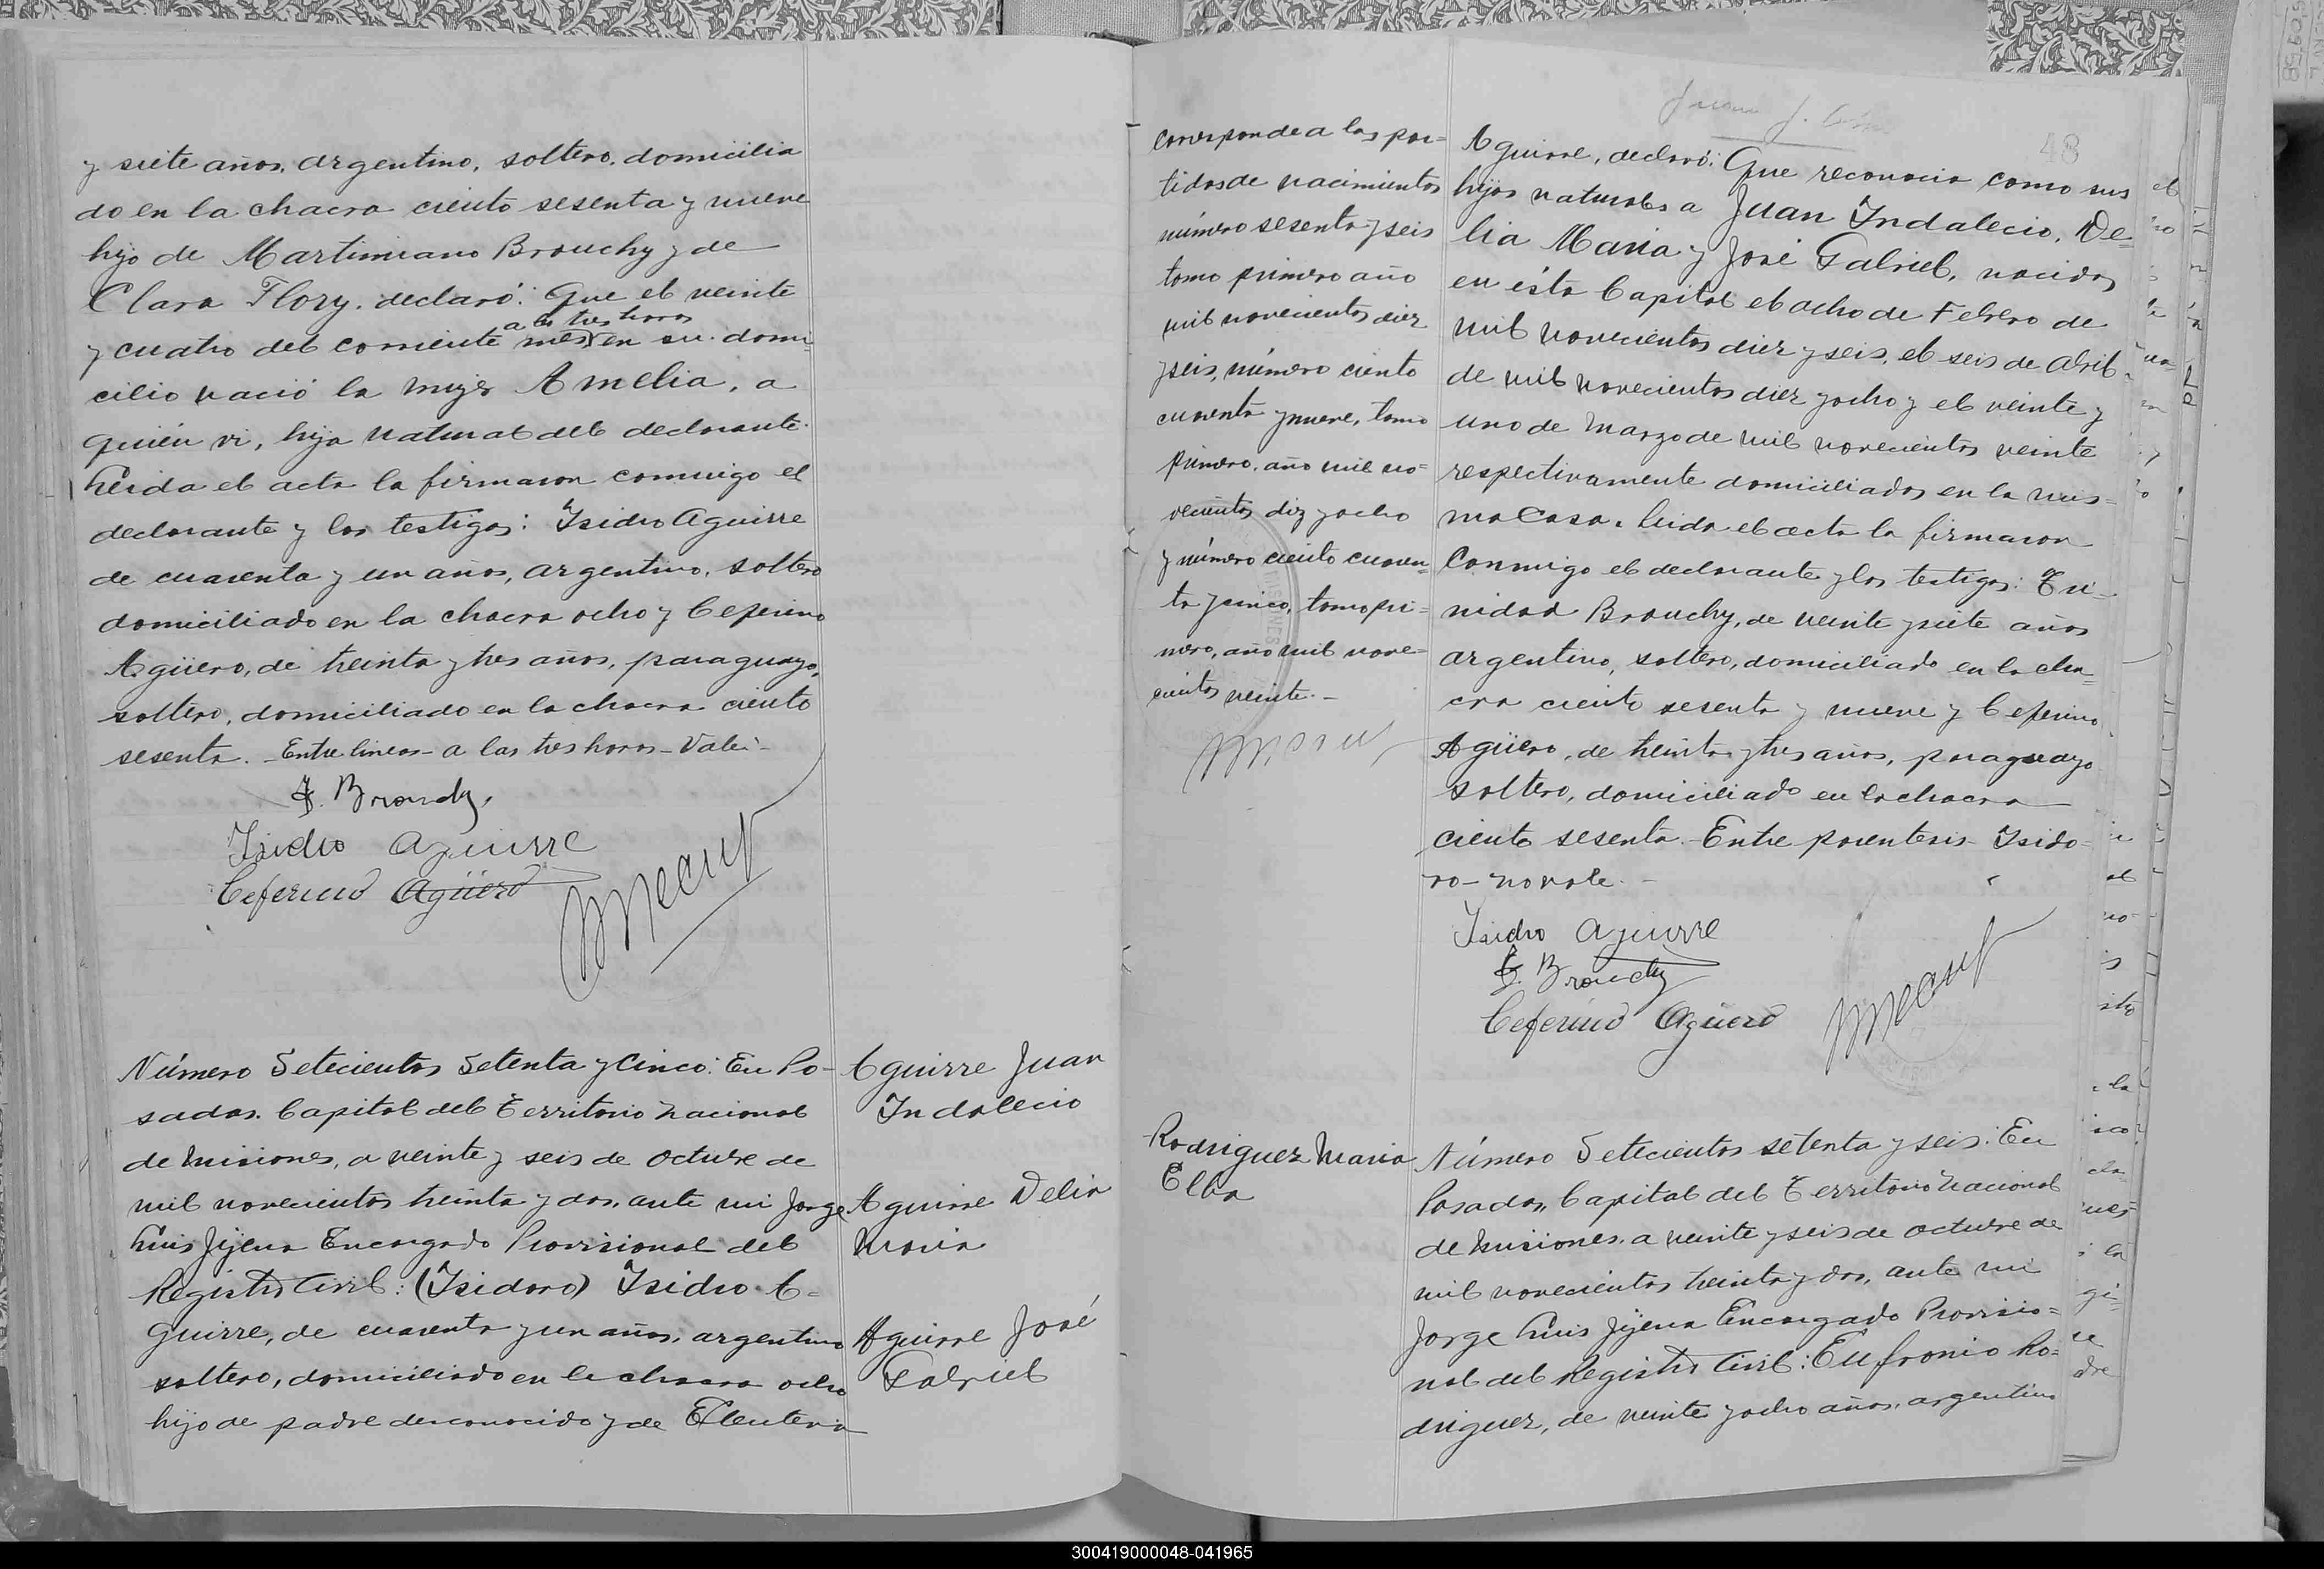 y siete años, argentino, soltero, domicilia
do en la chacra ciento sesenta y nueve
hijo de Martimiano Brouchy y de
Clara Flory, declaró: Que el veinte
a las tres horas
y cuatro del corriente mes en su domi-
cilio nació la mujer Amelia, a
quién vi, hija natural del declarante.
Leida el acta la firmaron conmigo el
declarante y los testigos: Isidro Aguirre
de cuarenta y un años, argentino, soltero
domiciliado en la chacra ocho y Ceferino
Agüero, de treinta y tres años, paraguayo,
soltero, domiciliado en la chacra ciento
sesenta. - Entre lineas - a las tres horas - Vale: -
J. Brouchy,
Isidro Aguirre
Ceferino Agüero
Número Setecientos Setenta y Cinco: En Po-
sadas, Capital del Territorio Nacional
de Misiones, a veinte y seis de octubre de
mil novecientos treinta y dos, ante mi Jorge
Luis Jijena Encargado Provisional del
Registro Civil: (Isidoro) Isidro A-
guirre, de cuarenta y un años, argentino
soltero, domiciliado en la chacra ocho
hijo de padre desconocido y de Eleuteria
Aguirre Juan
Indalecio
Aguirre Delia
Maria
Aguirre José
Gabriel
48
corresponde a las par-
tidas de nacimientos
número sesenta y seis
tomo primero año
mil novecientos diez
y seis, número ciento
cuarenta y nueve, tomo
primero, año mil no-
vecientos diez y ocho
y número ciento cuaren-
ta y cinco, tomo pri-
mero, año mil nove-
cientos veinte. -
Aguirre, declaró: Que reconocia como sus
hijos naturales a Juan Indalecio, De-
lia Maria y José Gabriel, nacidos
en ésta Capital el ocho de Febrero de
mil novecientos diez y seis, el seis de abril
de mil novecientos diez y ocho y el veinte y
uno de marzo de mil novecientos veinte
respectivamente domiciliados en la mis-
ma casa. Leida el acta la firmaron
conmigo el declarante y los testigos: Tri-
nidad Brouchy, de veinte y siete años
argentino, soltero, domiciliado en la cha-
cra ciento sesenta y nueve y Ceferino
Agüero, de treinta y tres años, paraguayo
soltero, domiciliado en la chacra
ciento sesenta. - Entre parentesis - Isido-
ro - no vale. -
Isidro Aguirre
J. Brouchy
Ceferino Agüero
Rodriguez Maria
Elba
Número Setecientos setenta y seis: En
Posadas, Capital del Territorio Nacional
de Misiones, a veinte y seis de octubre de
mil novecientos treinta y dos, ante mi
Jorge Luis Jijena Encargado Provisio-
nal del Registro Civil: Eufronio Ro-
driguez, de veinte y ocho años, argentino
300419000048-041965